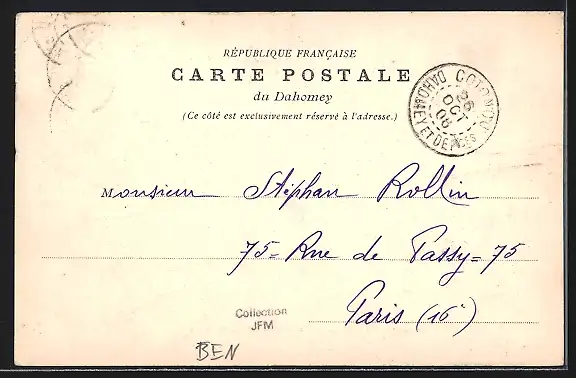 RÉPUBLIQUE FRANÇAISE
CARTE POSTALE
du Dahomey
(Ce côté est exclusivement réservé à l'adresse.)
COTONOU
26
OCT
06
DAHOMEY ET DÉPCES
Monsieur Stéphan Rollin
75 = Rue de Passy = 75
Paris (16e)
Collection
JFM
BEN